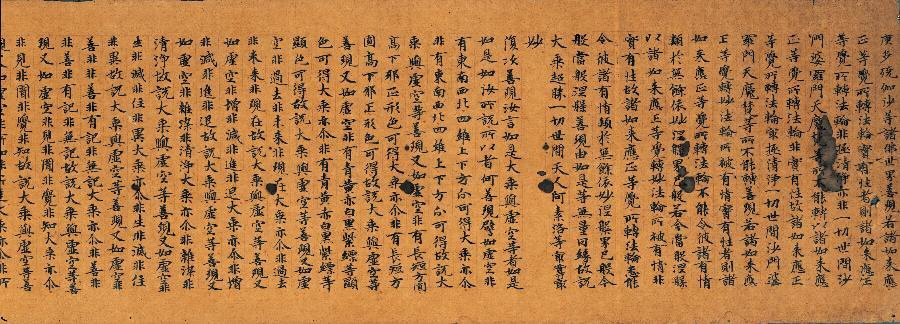 多殑伽沙等諸佛世界善現若諸如來應
正等覺所轉法輪實有性者則諸如來應正
等覺所轉法輪非極清淨亦非一切世間沙
門婆羅門天魔等所不能轉以諸如來應
正等覺所轉法輪非實有性故諸如來應正
等覺所轉法輪最極清淨一切世間沙門婆
羅門天魔梵等所不能轉善現若諸如來應
正等覺轉妙法輪所被有情實有性者則諸
如來應正等覺所轉法輪不能令彼諸有情
類於無餘依妙涅槃界已般今般當般涅槃
以諸如來應正等覺轉妙法輪所被有情非
實有性故諸如來應正等覺所轉法輪悉能
令彼諸有情類於無餘依妙涅槃界已般今
般當般涅槃善現由如是等無量因緣故說
大乘超勝一切世間天人阿素洛等最尊最
妙
復次善現汝言如是大乘與虛空等者如是
如是如汝所說所以者何善現譬如虛空非
有東南西北四維上下方分可得大乘亦尒
非有東南西北四維上下方分可得故說大
乘與虛空等善現又如虛空非有長短方圓
高下邪正形色可得大乘亦尒非有長短方
圓高下邪正形色可得故說大乘與虛空等
善現又如虛空非有青黃赤白黑紫縹等顯
色可得大乘亦尒非有青黃赤白黑紫縹等
顯色可得故說大乘與虛空等善現又如虛
空非過去非未來非現在大乘亦尒非過去
非未來非現在故說大乘與虛空等善現又
如虛空非增非減非進非退大乘亦尒非增
非減非進非退故說大乘與虛空等善現又
如虛空非雜染非清淨大乘亦尒非雜染非
清淨故說大乘與虛空等善現又如虛空非
生非滅非住非異大乘亦尒非生非滅非住
非異故說大乘與虛空等善現又如虛空非
善非非善非有記非無記大乘亦尒非善非
非善非有記非無記故說大乘與虛空等善
現又如虛空非見非聞非覺非知大乘亦尒
非見非聞非覺非知故說大乘與虛空等善